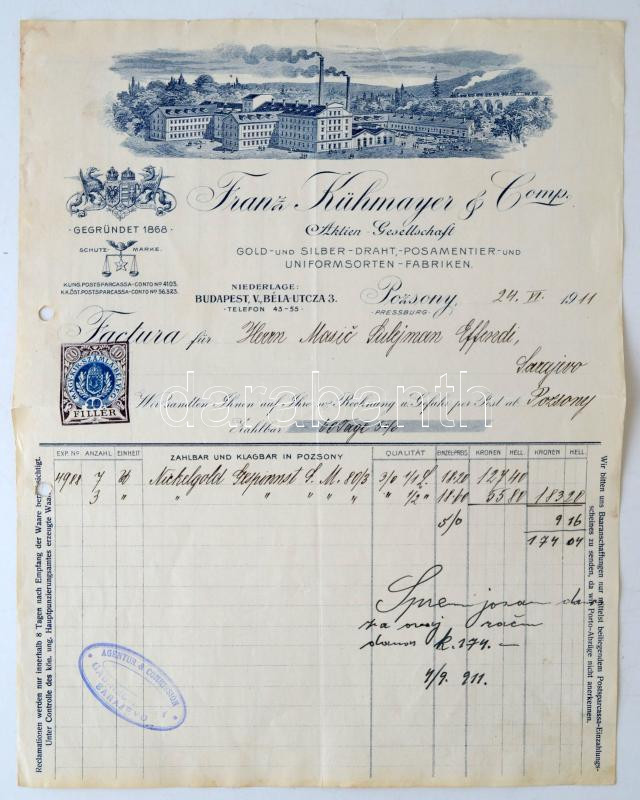 Franz Kühmayer & Comp.
Aktien-Gesellschaft
GOLD-UND SILBER-DRAHT,-POSAMENTIER-UND
UNIFORMSORTEN-FABRIKEN.
·GEGRÜNDET 1868·
SCHUTZ MARKE.
KUNG. POSTSPARCASSA-CONTO Nº 4103.
K.K. ÖST. POSTSPARCASSA-CONTO Nº 56.323.
NIEDERLAGE:
BUDAPEST, V., BÉLA-UTCZA 3.
·TELEFON 43-55·
Pozsony, 24. VI. 1911
-PRESSBURG-
Factura für Herrn Masič Sulejman Effendi,
Sarajevo
10 10
FILLÉR
Wir sandten Ihnen auf Ihre Rechnung u. Gefahr per Post ab Pozsony
Zahlbar 60 Tage 5%
darabanth
EXP. Nº ANZAHL EINHEIT ZAHLBAR UND KLAGBAR IN POZSONY QUALITÄT EINZELPREIS KRONEN HELL. KRONEN HELL.
7 Nickelgold Gespinnst S. M. 80/3 3/0 18.20 127 40
3 " " " " " " " 1/2 " 18.60 55 80 183 20
5/0 9 16
174 04
za ovaj račun
danas K. 174.-
9/9. 911.
AGENTUR & COMMISSION
SARAJEVO
Reclamationen werden nur innerhalb 8 Tagen nach Empfang der Waare berücksichtigt.
Unter Controlle des kön. ung. Hauptpunzierungsamtes erzeugte Waare.
Wir bitten uns Baaranschaffungen nur mittelst beiliegendem Postsparcassa-Einzahlungs-
scheines zu senden, da wir Porto-Abzüge nicht anerkennen.